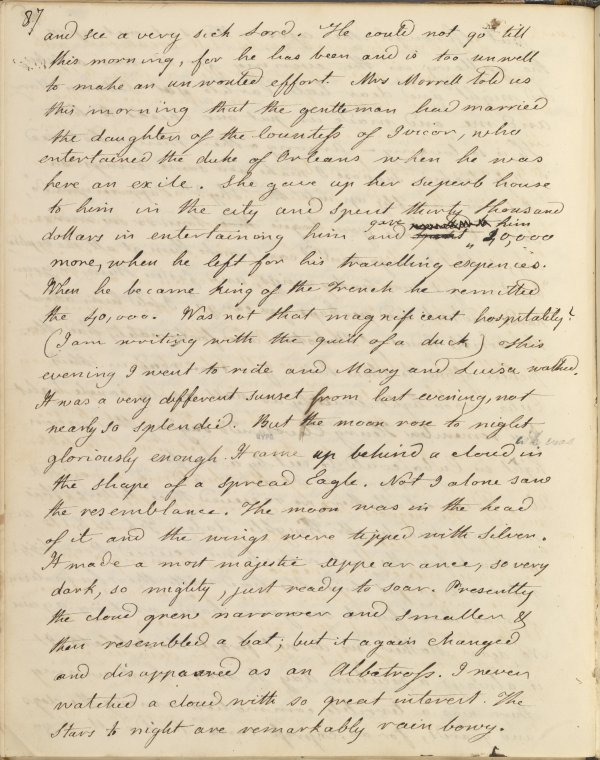 87
and see a very sick Lord. He could not go till
this morning, for he has been and is too unwell
to make an unwonted effort. Mrs Morrell told us
this morning that the gentleman had married
the daughter of the Countess of Ivicor, who
entertained the duke of Orleans when he was
here an exile. She gave up her superb house
to him in the city and spent thirty thousand
gave him
dollars in entertaining him and 10,000
more, when he left for his travelling expenses.
When he became King of the French he remitted
the 40,000. Was not that magnificent hospitality?
(I am writing with the quill of a duck) This
evening I went to ride and Mary and Luisa walked.
It was a very different sunset from last evening, not
nearly so splendid. But the moon rose to night
gloriously enough. It came up behind a cloud in
the shape of a spread Eagle. Not I alone saw
the resemblance. The moon was in the head
of it and the wings were tipped with silver.
It made a most majestic appearance, so very
dark, so mighty, just ready to soar. Presently
the cloud grew narrower and smaller &
then resembled a bat; but it again changed
and disappeared as an Albatross. I never
watched a cloud with so great interest. The
stars to night are remarkably rainbowy.